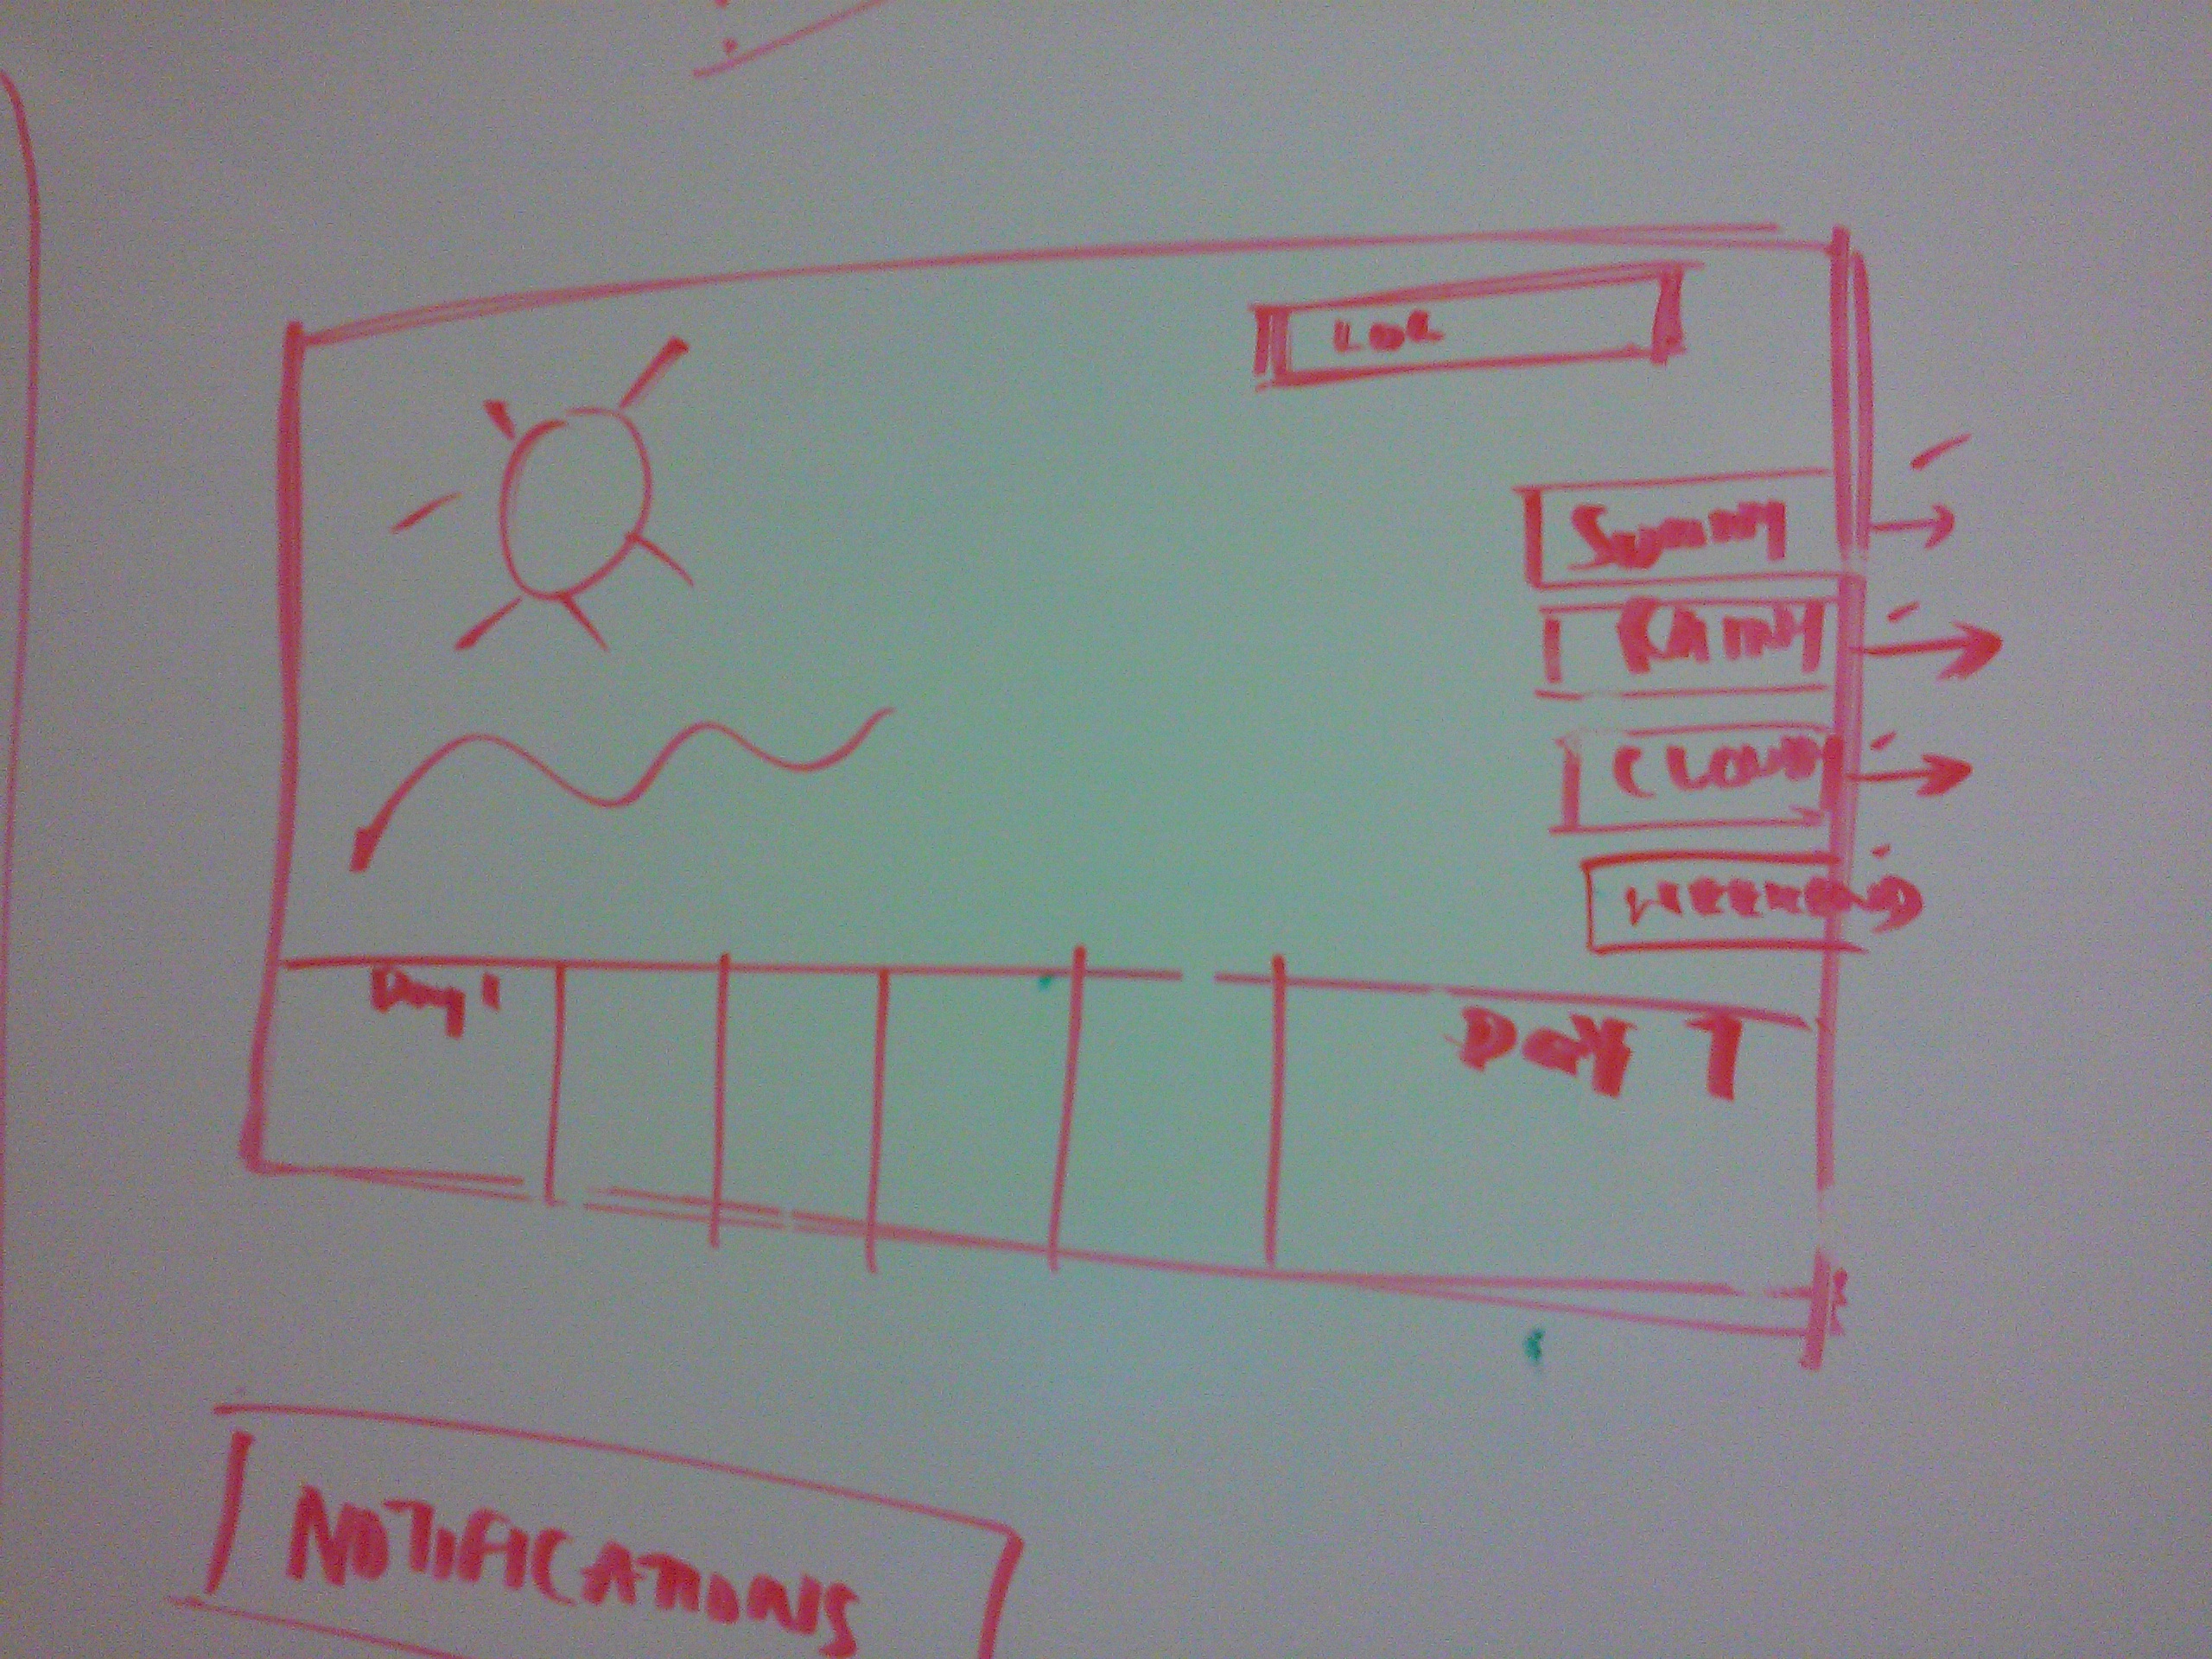 LOC
Sunny
Rainy
Cloudy
Weekend
Day 1
Day 7
NOTIFICATIONS